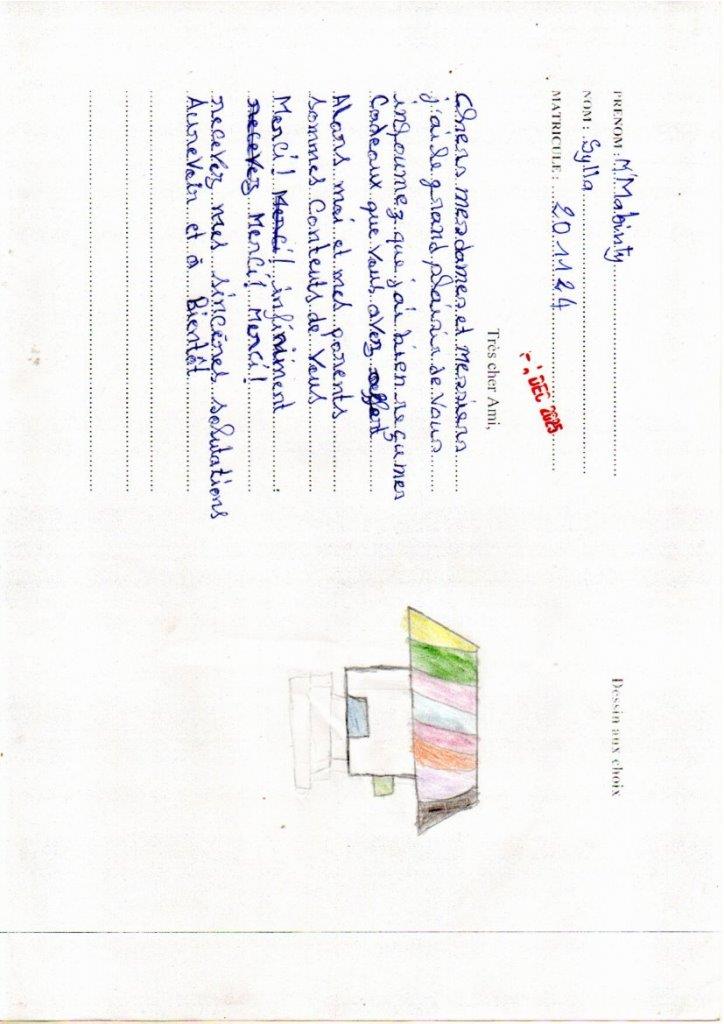 PRENOM : M'Mabinty
NOM : Sylla
MATRICULE : 201124
DEC 2025
Très cher Ami,
Chers mesdames et messiers
j'ai le grand plaisir de vous
informez que j'ai bien reçu mes
Cadeaux que vous avez offert
Alors moi et mes parents
sommes Contents de Vous
Merci! Merci! infiniment
recevez Merci! Merci!
recevez mes sincères salutations
Aurevoir et à Bientôt
Dessin aux choix